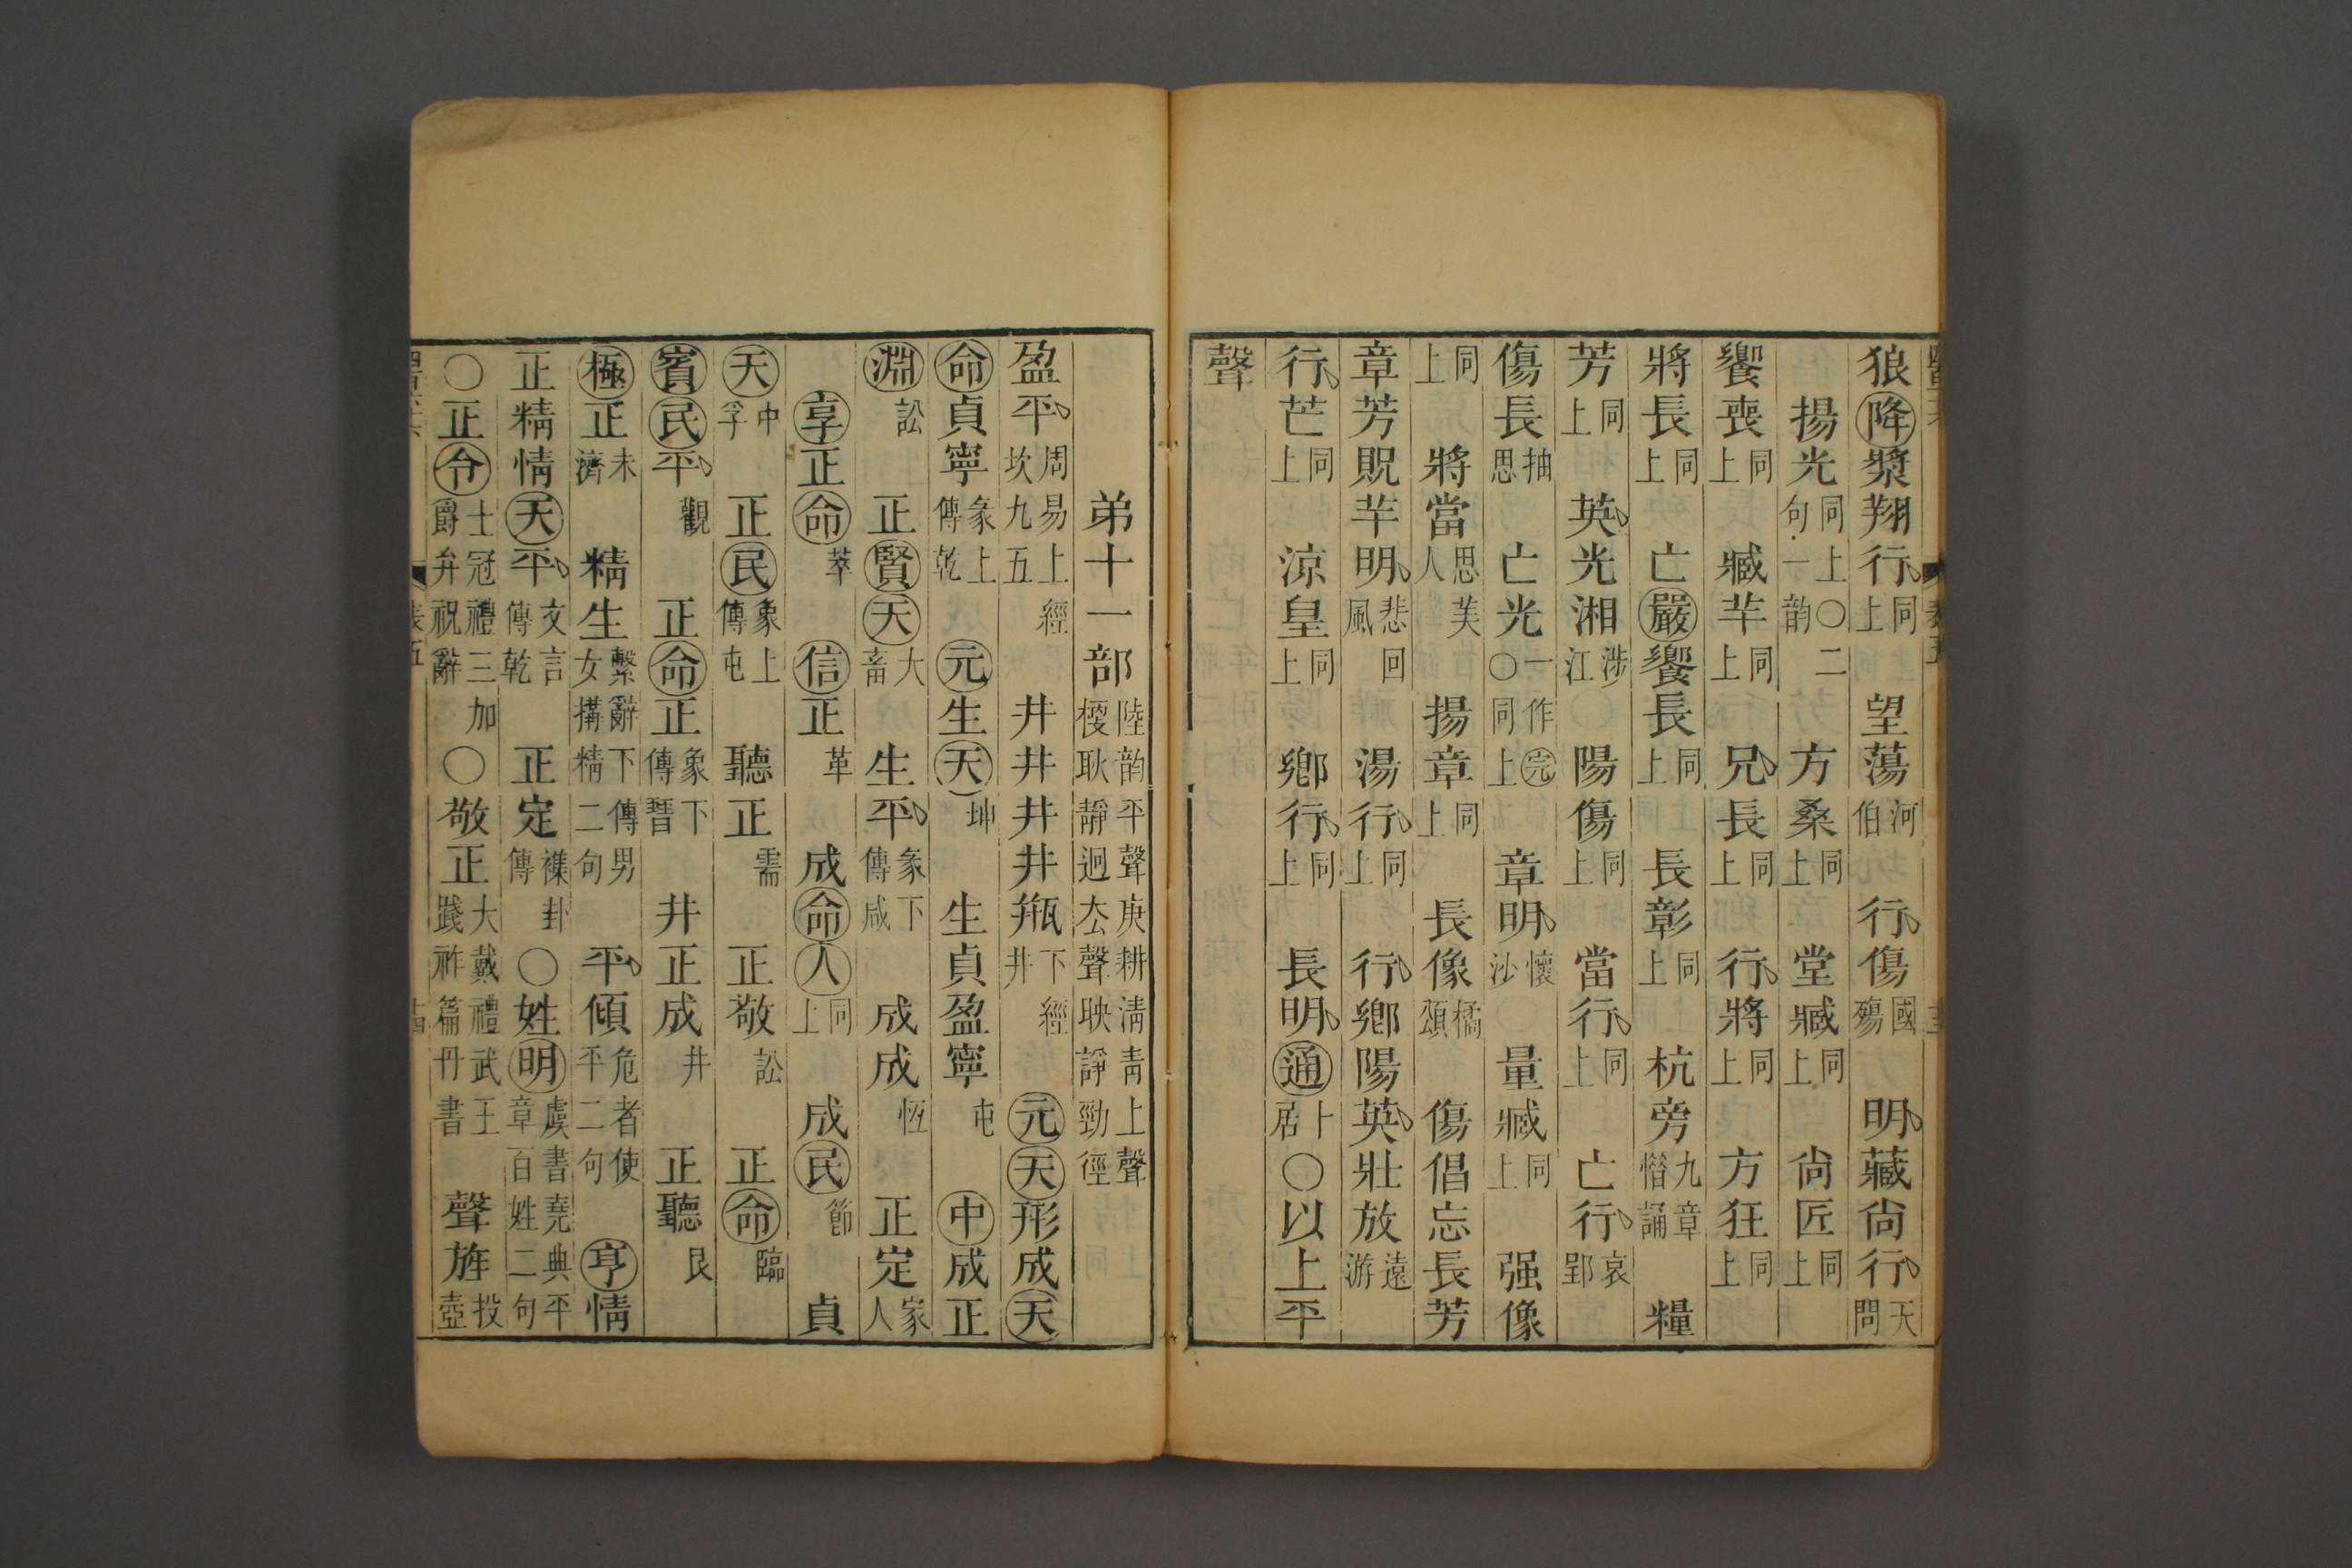 狼降漿翔行同上望蕩河伯行傷國殤明藏尙行天問
揚光同上一句〇二韵方桑同上堂臧同上尙匠同上
饗喪同上臧羊同上兄長同上行將同上方狂同上
將長同上亡嚴饗長同上長彰同上杭旁九章惜誦糧
芳同上英光湘涉江陽傷同上當行同上亡行哀郢
傷長抽思亡光一作完〇同上章明懷沙量臧同上强像
同上將當思美人揚章同上長像橘頌傷倡忘長芳
章芳貺羋明悲回風湯行同上行鄉陽英壯放遠游
行芒同上涼皇同上鄉行同上長明通卜居〇以上平
聲
弟十一部陸韵平聲庚耕淸靑上聲梗耿靜迥去聲映諍勁徑
盈平周易上經坎九五井井井井瓶下經井元天形成天
命貞寧彖上傳乾元生天坤生貞盈寧屯中成正
淵訟正賢天大畜生平彖下傳咸成成恆正定家人
享正命萃信正革成命人同上成民節貞
天中孚正民象上傳屯聽正需正敬訟正命臨
賓民平觀正命正象下傳晉井正成井正聽艮
極正未濟精生繫辭下傳男女搆精二句平傾危者使平二句亨情
正精情天平文言傳乾正定襍卦傳〇姓明虞書堯典平章百姓二句
〇正令士冠禮三加爵弁祝辭〇敬正大戴禮武王踐祚篇丹書聲旌投壺